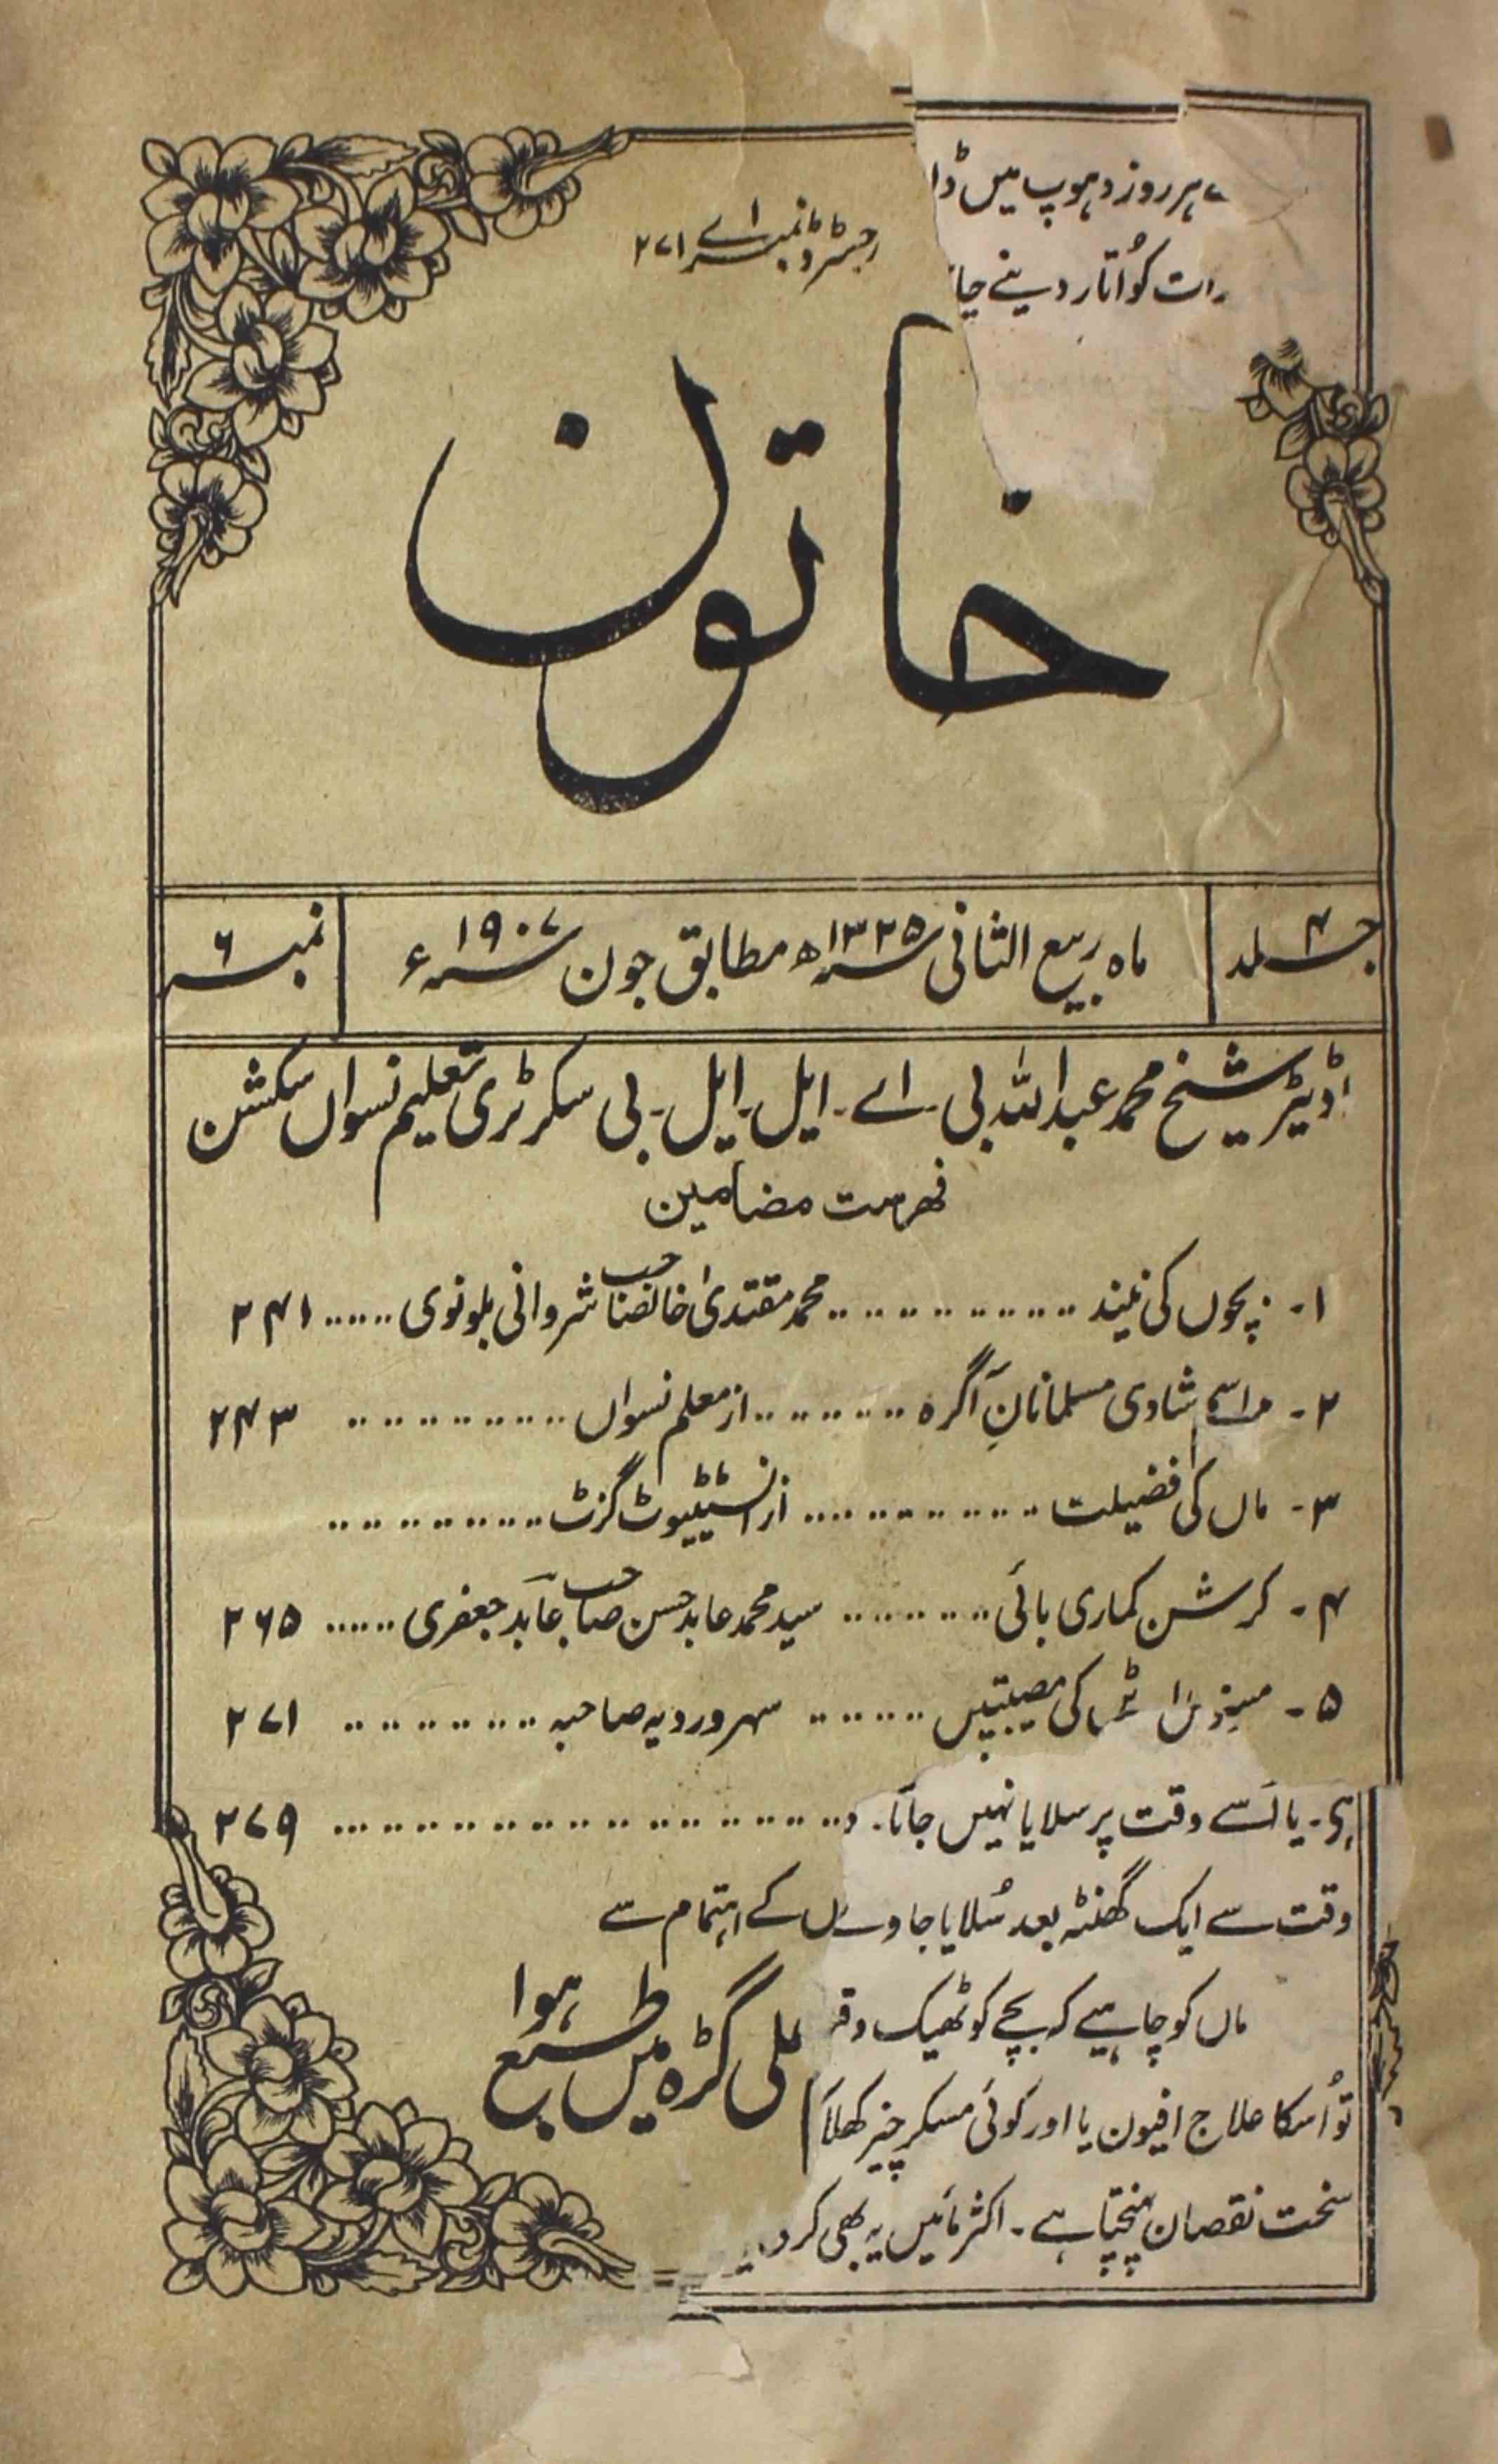 ہر روز دہوپ میں ڈا
رجسٹرڈ نمبر اے ۲۷۱
رات کو اُتار دینے جا
خاتون
جلد ۴
ماہ ربیع الثانی سنہ ۱۳۲۵ھ مطابق جون سنہ ۱۹۰۷ء
نمبر ۶
اڈیٹر شیخ محمد عبداللہ بی۔ اے۔ ایل۔ ایل۔ بی سکرٹری تعلیم نسواں سکشن
فہرست مضامین
۱۔ بچوں کی نیند .......... محمد مقتدیٰ خانصاحب شروانی بلونوی ...... ۲۴۱
۲۔ مراسم شادی مسلمانانِ آگرہ .......... از معلم نسواں .......... ۲۴۳
۳۔ ماں کی فضیلت .......... از انسٹیٹیوٹ گزٹ ..........
۴۔ کرشن کماری بائی .......... سید محمد عابد حسن صاحب عابد جعفری ...... ۲۶۵
۵۔ کی مصیبتیں ...... سہروردیہ صاحبہ .......... ۲۷۱
یا اُسے وقت پر سلایا نہیں جاتا۔ .......... ۲۷۹
وقت سے ایک گھنٹہ بعد سُلایا جاوے کے اہتمام سے
ماں کو چاہیے کہ بچے کو ٹھیک وقت
علی گڑہ میں طبع ہوا
تو اُسکا علاج افیون یا اور کوئی مسکر چیز کھلا
سخت نقصان پہنچتا ہے۔ اکثر مائیں یہ بھی کر